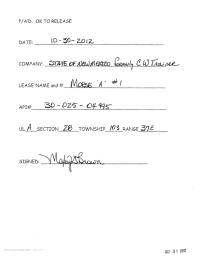 P/AD. OK TO RELEASE
DATE: 10-30-2012
COMPANY: STATE OF NEW MEXICO formerly C W TRAINER
LEASE NAME and # MORSE 'A' #1
API# 30-025-04995
UL A SECTION 28 TOWNSHIP 10S RANGE 37E
SIGNED Brown
OCT 31 2012